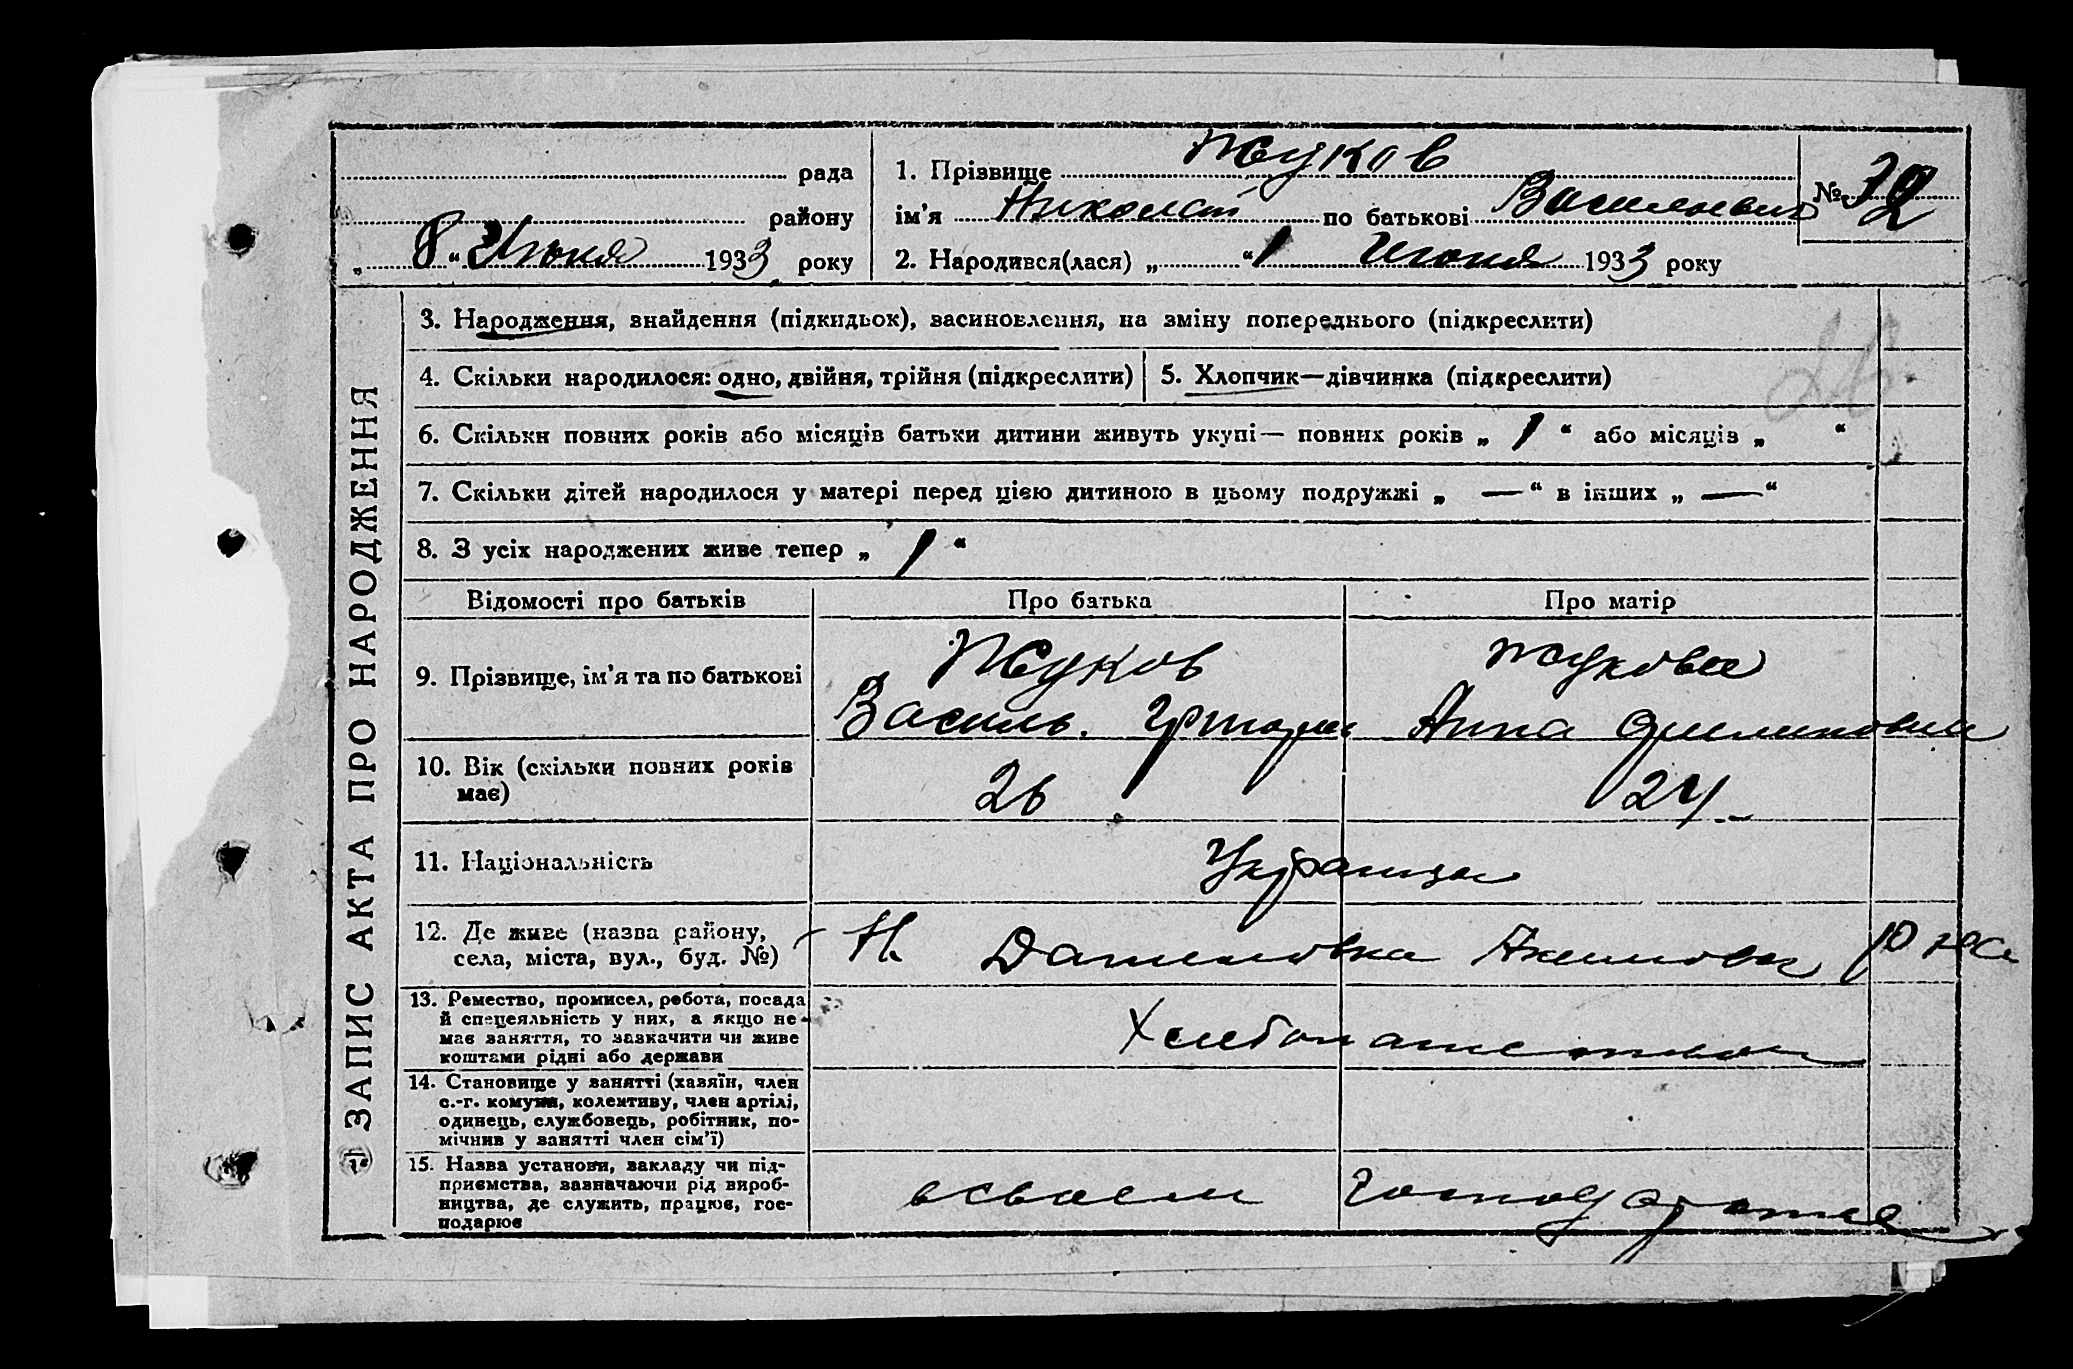 рада
району
„ 8 “ Июня 1933 року
1. Прізвище Жуков
ім’я Николай по батькові Васильевич
2. Народився(лася) „ “ 1 Июня 1933 року
№ 32
ЗАПИС АКТА ПРО НАРОДЖЕННЯ
3. Народження, знайдення (підкидьок), васиновлення, на зміну попереднього (підкреслити)
4. Скільки народилося: одно, двійня, трійня (підкреслити)
5. Хлопчик—дівчинка (підкреслити)
6. Скільки повних років або місяців батьки дитини живуть укупі— повних років „ 1 “ або місяців „ “
7. Скільки дітей народилося у матері перед цією дитиною в цьому подружжі „ — “ в інших „ — “
8. З усіх народжених живе тепер „ 1 “
Відомості про батьків
Про батька
Про матір
9. Прізвище, ім’я та по батькові
Жуков
Василь.
Жукова
Анна
10. Вік (скільки повних років
має)
26
24
11. Національність
Украинцы
12. Де живе (назва району,
села, міста, вул., буд. №)
Н. Даниловка Акимовск
13. Ремество, промисел, робота, посада
й спецеяльність у них, а якщо не-
має заняття, то зазкачити чи живе
коштами рідні або держави
Хлебопашество
14. Становище у занятті (хазяїн, член
с.-г. комуни, колективу, член артілі,
одинець, службовець, робітник, по-
мічнив у занятті член сім’ї)
15. Назва установи, закладу чи під-
приємства, зазначаючи рід вироб-
ництва, де служить, працює, гос-
подарює